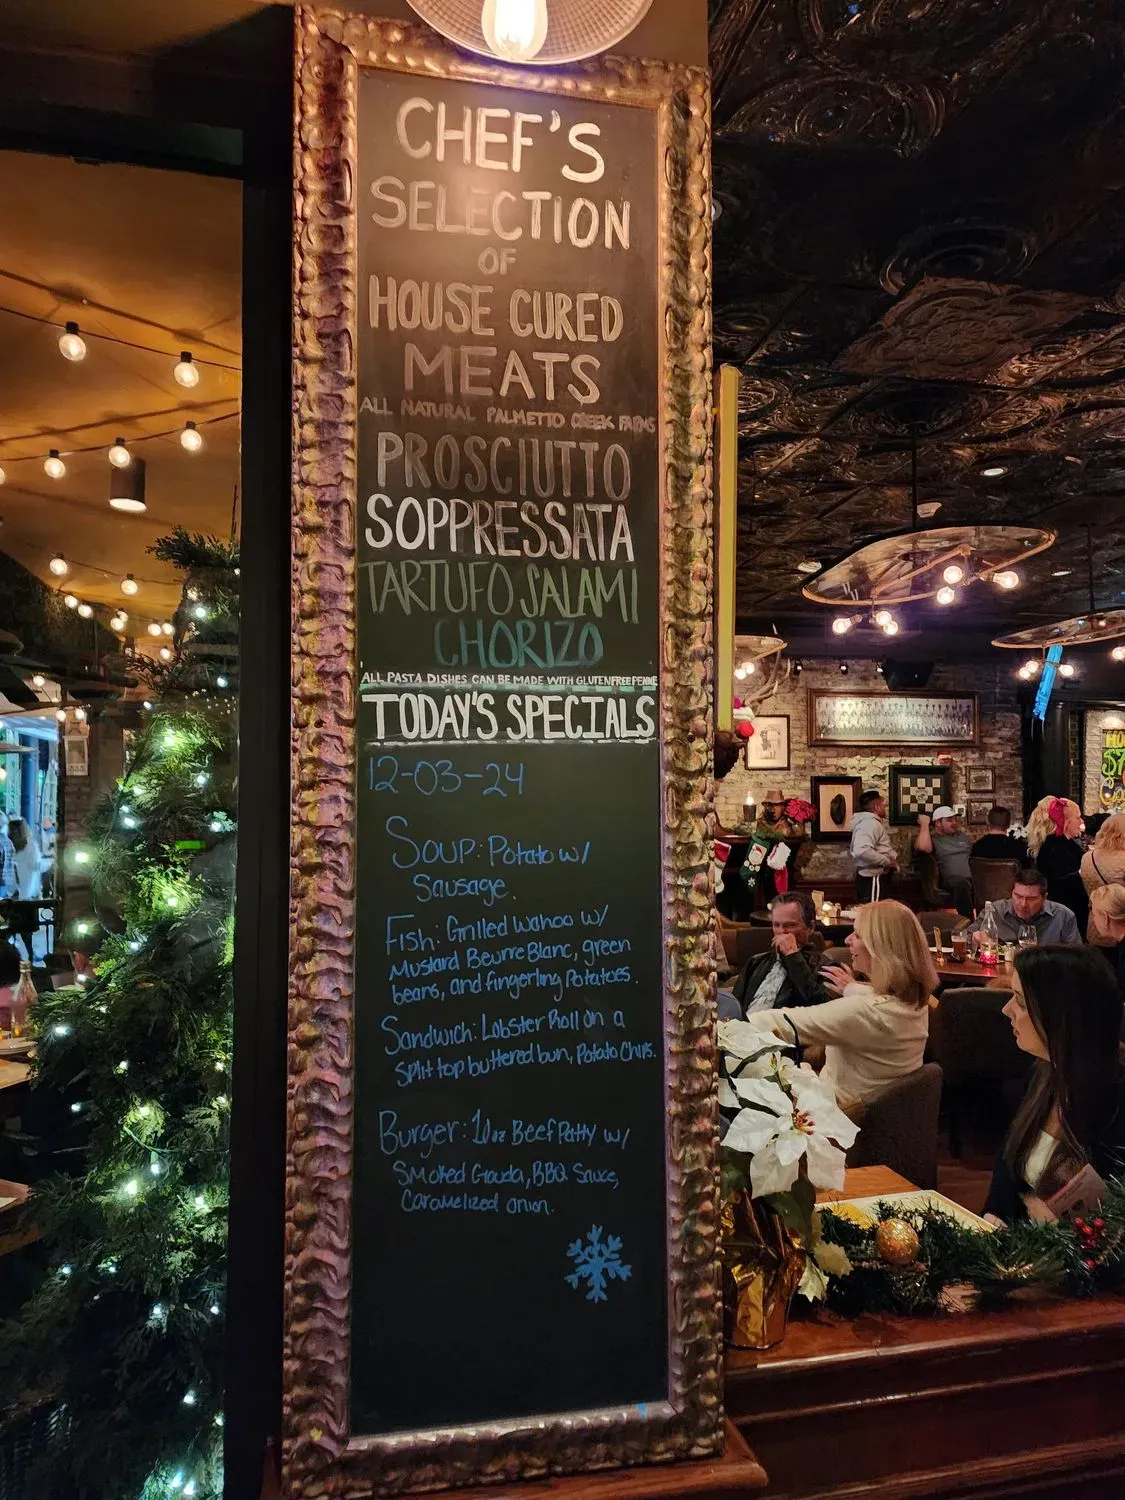 CHEF'S
SELECTION
OF
HOUSE CURED
MEATS
ALL NATURAL PALMETTO CREEK FARMS
PROSCIUTTO
SOPPRESSATA
TARTUFO SALAMI
CHORIZO
ALL PASTA DISHES CAN BE MADE WITH GLUTEN FREE PENNE
TODAY'S SPECIALS
12-03-24
Soup: Potato w/
Sausage.
Fish: Grilled Wahoo w/
Mustard Beurre Blanc, green
beans, and fingerling Potatoes.
Sandwich: Lobster Roll on a
Split top buttered bun, Potato Chips.
Burger: 10oz Beef Patty w/
Smoked Gouda, BBQ Sauce,
Caramelized onion.